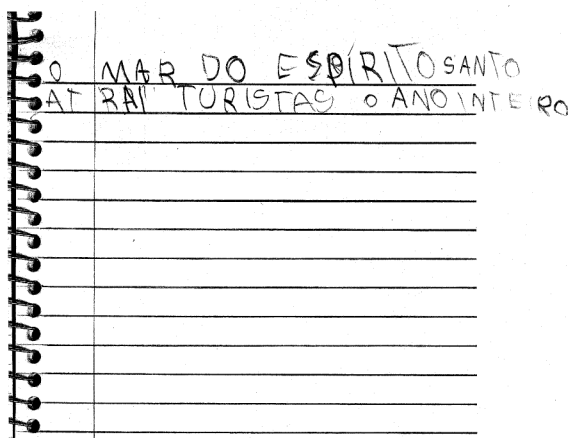 O MAR DO ESPÍRITO SANTO
ATRAI TURISTAS O ANO INTEIRO